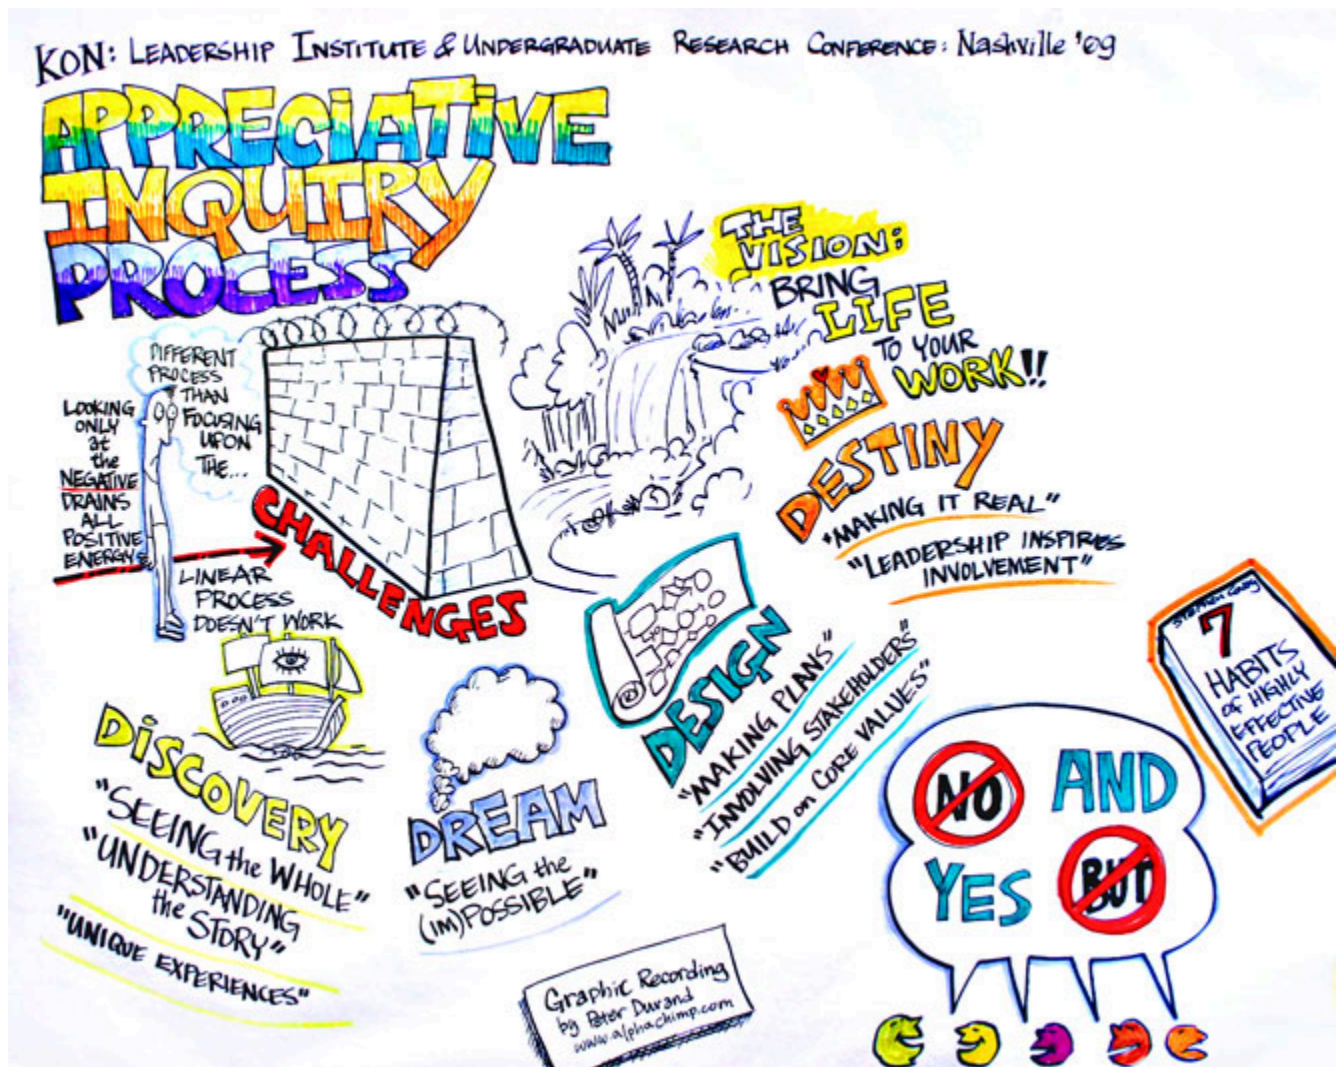 KON: LEADERSHIP INSTITUTE & UNDERGRADUATE RESEARCH CONFERENCE: Nashville '09
APPRECIATIVE
INQUIRY
PROCESS
THE
VISION:
BRING
LIFE
TO YOUR
WORK!!
DIFFERENT
PROCESS
THAN
FOCUSING
UPON
THE...
LOOKING
ONLY
at
the
NEGATIVE
DRAINS
ALL
POSITIVE
ENERGY
CHALLENGES
LINEAR
PROCESS
DOESN'T WORK
DESTINY
"MAKING IT REAL"
"LEADERSHIP INSPIRES
INVOLVEMENT"
DISCOVERY
"SEEING the WHOLE"
"UNDERSTANDING
the STORY"
"UNIQUE EXPERIENCES"
DREAM
"SEEING the
(IM)POSSIBLE"
DESIGN
"MAKING PLANS"
"INVOLVING STAKEHOLDERS"
"BUILD on CORE VALUES"
Stephen Covey
7
HABITS
OF HIGHLY
EFFECTIVE
PEOPLE
NO AND
YES BUT
Graphic Recording
by Peter Durand
www.alphachimp.com